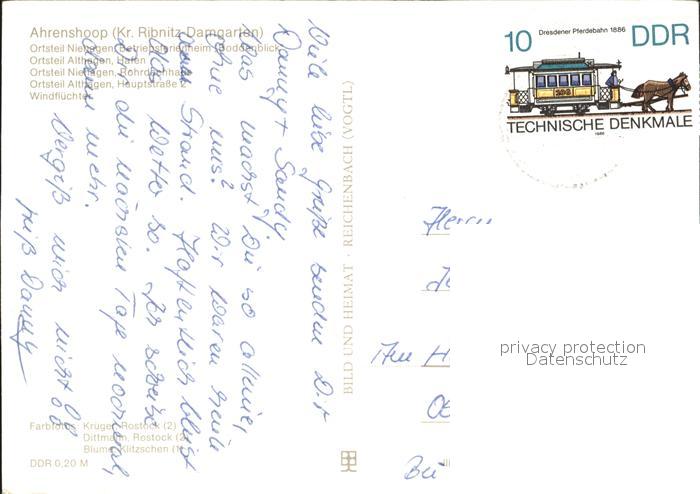 Ahrenshoop (Kr. Ribnitz-Damgarten)
Ortsteil Niehagen, Betriebsferienheim "Boddenblick"
Ortsteil Althagen, Hafen
Ortsteil Niehagen, Rohrdachhaus
Ortsteil Althagen, Hauptstraße
Windflüchter
Viele liebe Grüße senden Dir
Danny + Sandy.
Was machst Du so alleine,
ohne uns? Wir waren heute
am Strand. Hoffentlich bleibt
das Wetter so. Ich schreibe
die nächsten Tage nochmal,
mehr.
Vergiß mich nicht
Danny
Farbfotos: Krüger, Rostock (2)
Dittmann, Rostock (2)
Blume, Klitzschen (1)
DDR 0,20 M
BILD UND HEIMAT · REICHENBACH (VOGTL)
Dresdener Pferdebahn 1886
10 DDR
296
TECHNISCHE DENKMALE
1986
Herrn
privacy protection
Datenschutz